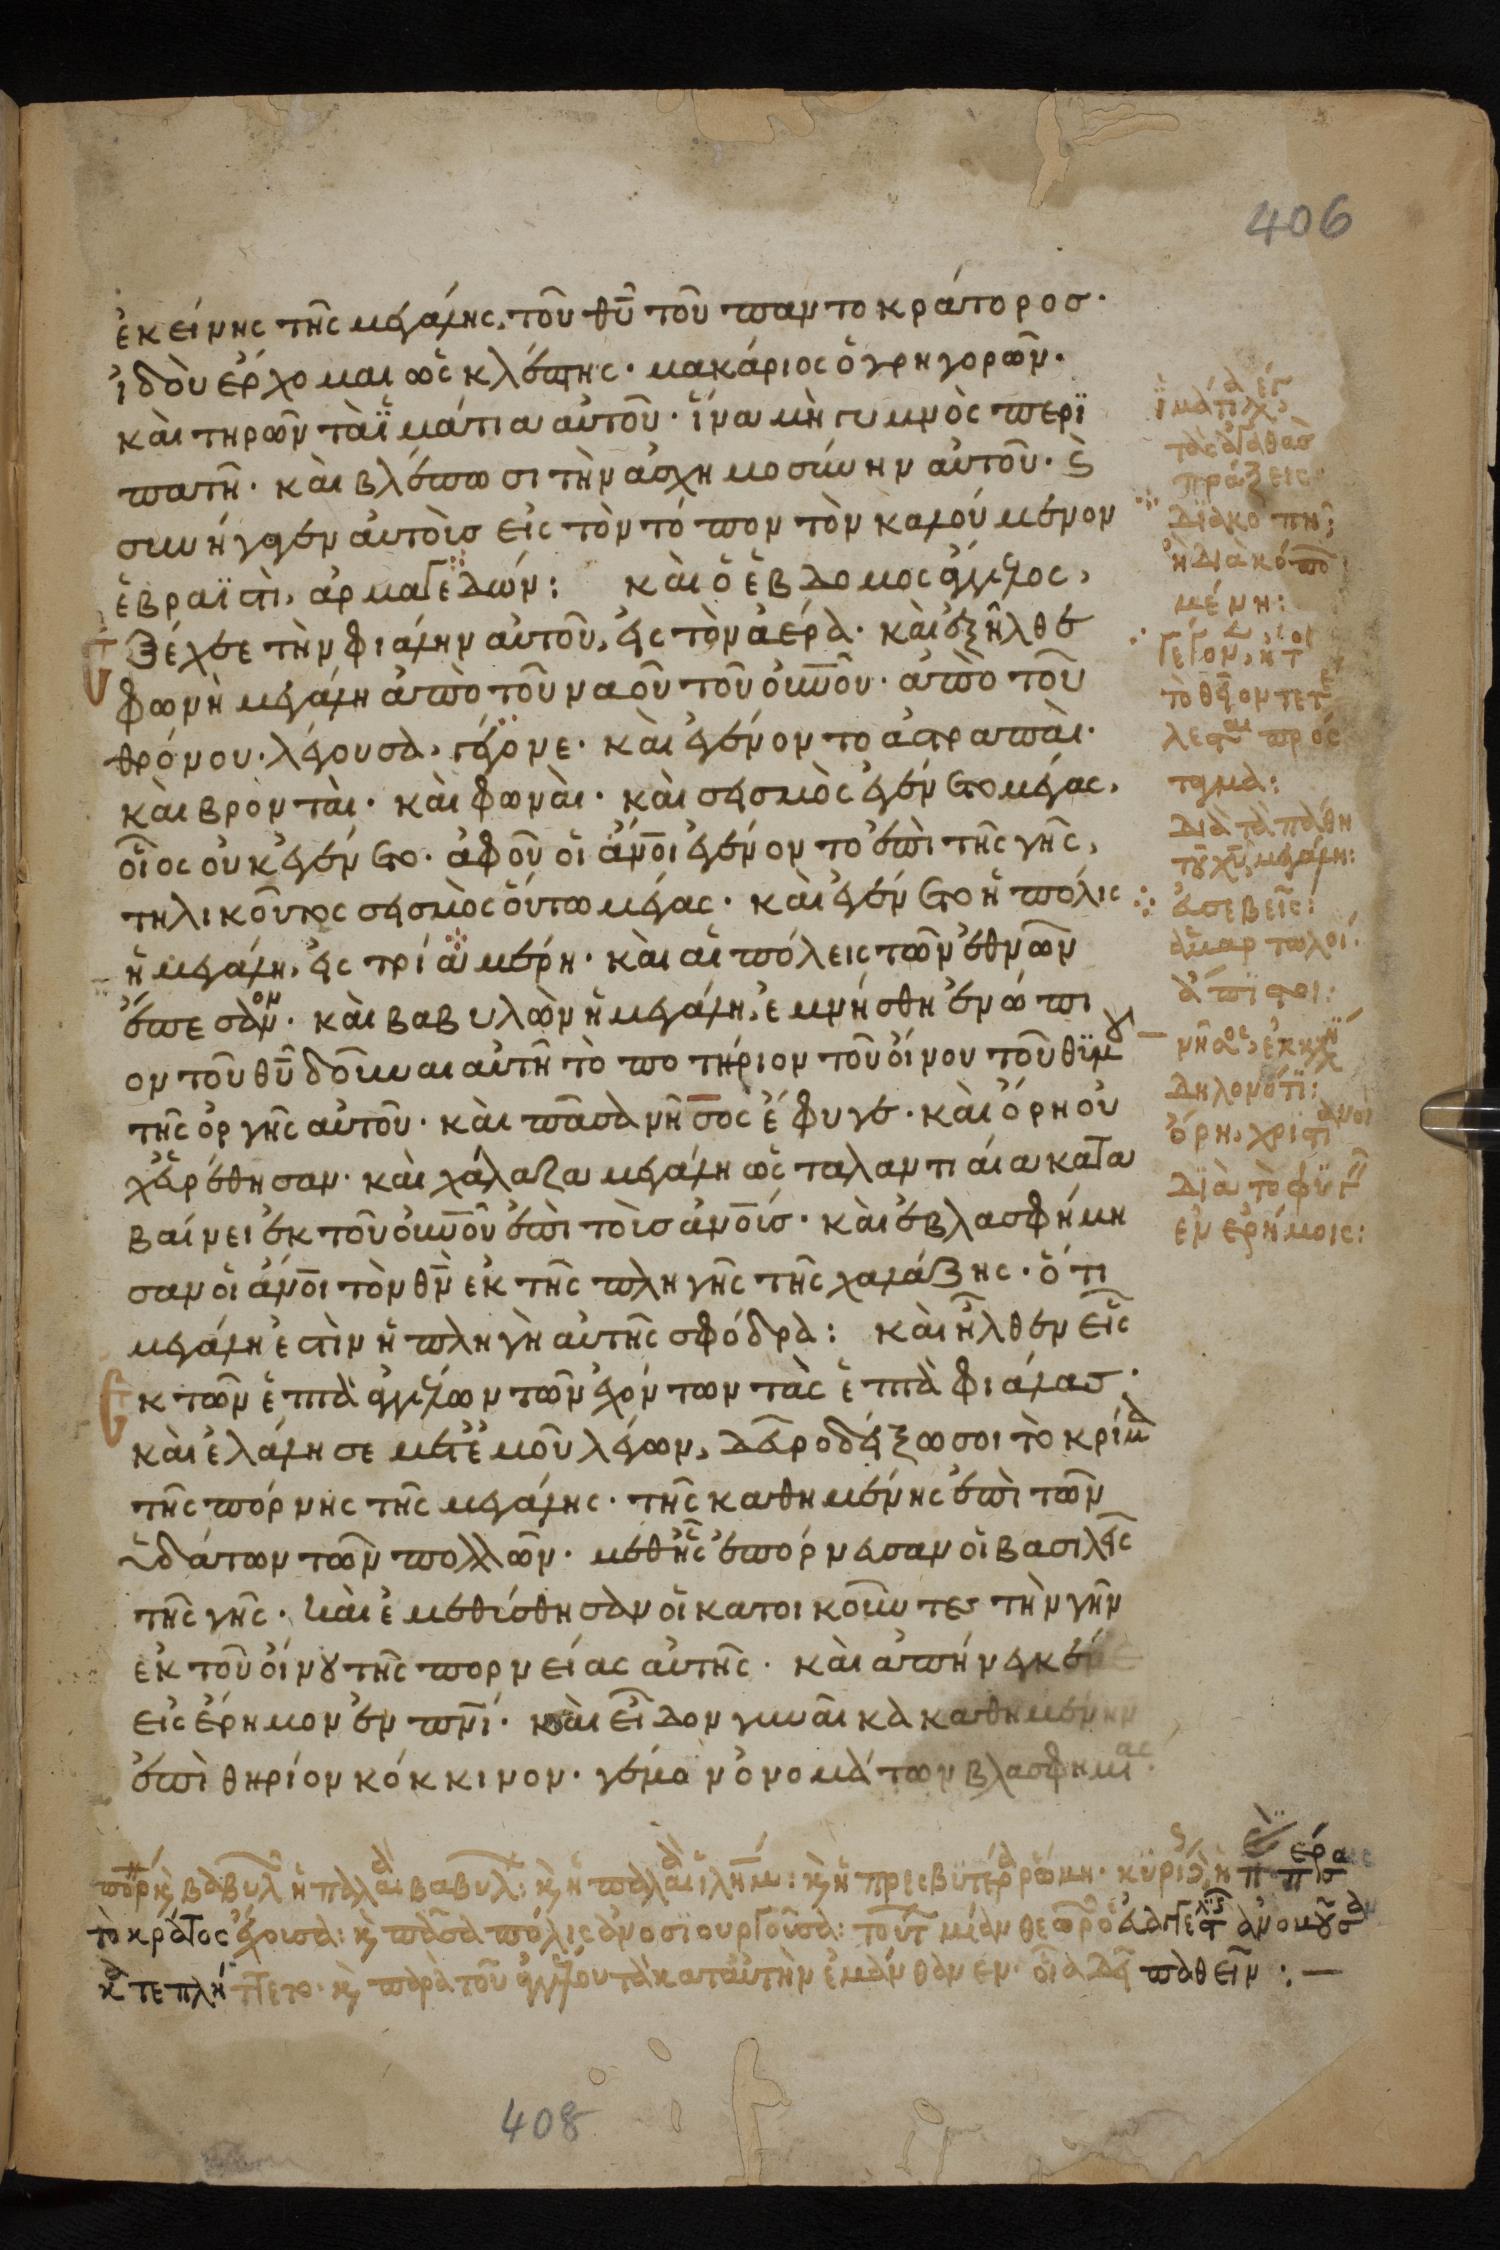 406
ἐκείνης τῆς μεγάλης, τοῦ θῦ τοῦ παντοκράτορος·
ἰδοὺ ἔρχομαι ὡς κλέπτης· μακάριος ὁ γρηγορῶν·
καὶ τηρῶν τὰ ἱμάτια αὐτοῦ· ἵνα μὴ γυμνὸς περι
πατῆ· καὶ βλέπωσι τὴν ἀσχημοσύνην αὐτοῦ· ϛ
συνήγαγεν αὐτοὺς εἰς τὸν τόπον τὸν καλούμενον
ἑβραϊστὶ, ἀρμαγεδών: καὶ ὁ ἕβδομος ἄγγελος,
ἐξέχεε τὴν φιάλην αὐτοῦ, εἰς τὸν ἀέρα· καὶ ἐξῆλθε
φωνὴ μεγάλη ἀπὸ τοῦ ναοῦ τοῦ οὐνοῦ· ἀπὸ τοῦ
θρόνου· λέγουσα, γέγονε· καὶ ἐγένοντο ἀστραπαὶ·
καὶ βρονταὶ· καὶ φωναὶ· καὶ σεισμὸς ἐγένετο μέγας,
οἷος οὐκ ἐγένετο· ἀφ οὗ οἱ ἄνοι ἐγένοντο ἐπὶ τῆς γῆς,
τηλικοῦτος σεισμὸς οὕτω μέγας· καὶ ἐγένετο ἡ πόλις
ἡ μεγάλη, εἰς τρία μέρη· καὶ αἱ πόλεις τῶν ἐθνῶν
ἔπεσον· καὶ βαβυλὼν ἡ μεγάλη, ἐμνήσθη ἐνώπι
ον τοῦ θῦ δοῦναι αὐτῆ τὸ ποτήριον τοῦ οἴνου τοῦ θυμου
τῆς ὀργῆς αὐτοῦ· καὶ πᾶσα νῆσος ἔφυγε· καὶ ὄρη οὐ
χ εὑρέθησαν· καὶ χάλαζα μεγάλη ὡς ταλαντιαία κατα
βαίνει ἐκ τοῦ οὐνοῦ ἐπὶ τοὺς ἀνους· καὶ ἐβλασφήμη
σαν οἱ ἄνοι τὸν θν ἐκ τῆς πληγῆς τῆς χαλάζης· ὅτι
μεγάλη ἐστὶν ἡ πληγὴ αὐτῆς σφόδρα: καὶ ἦλθεν εἷς
ἐκ τῶν ἑπτὰ ἀγγέλων τῶν ἐχόντων τὰς ἑπτὰ φιάλας·
καὶ ἐλάλησε μετ ἐμοῦ λέγων, δεῦρο δείξω σοι τὸ κρίμα
τῆς πόρνης τῆς μεγάλης· τῆς καθημένης ἐπὶ τῶν
ὑδάτων τῶν πολλῶν· μεθ ἧς ἐπόρνευσαν οἱ βασιλεῖς
τῆς γῆς· καὶ ἐμεθύσθησαν οἱ κατοικοῦντες τὴν γῆν
ἐκ τοῦ οἴνου τῆς πορνείας αὐτῆς· καὶ ἀπήνεγκέ με
εἰς ἔρημον ἐν πνι· καὶ εἶδον γυναῖκα καθημένην
ἐπὶ θηρίον κόκκινον· γέμον ὀνομάτων βλασφημίας·
ἱμάτια
τὰς ἀγαθὰς
πράξεις
Διακοπὴ,
ἢ διακοπτο
μένη:
πρός
ταγμα:
Διὰ τὰ πάθη
τοῦ χῦ μεγάλη:
ἀσεβεῖς:
ἁμαρτωλοί·
ἄπιστοι:
Δηλονότι:
ὄρη, χριστιανοὶ
Διὰ τὸ φυγεῖν
ἐν ἐρήμοις:
βαβυλ ἡ παλαιὰ βαβυλ: κ ἡ παλαιὰ ιλημ: κ ἡ πρεσβυτέρα ῥώμη·
τὸ κράτος ἔχουσα: κ πᾶσα πόλις ἀνοσιουργοῦσα:
κατεπλήττετο· κ παρὰ τοῦ ἀγγέλου τὰ κατ αὐτὴν ἐμάνθανεν· οἷα δεῖ παθεῖν :—
408